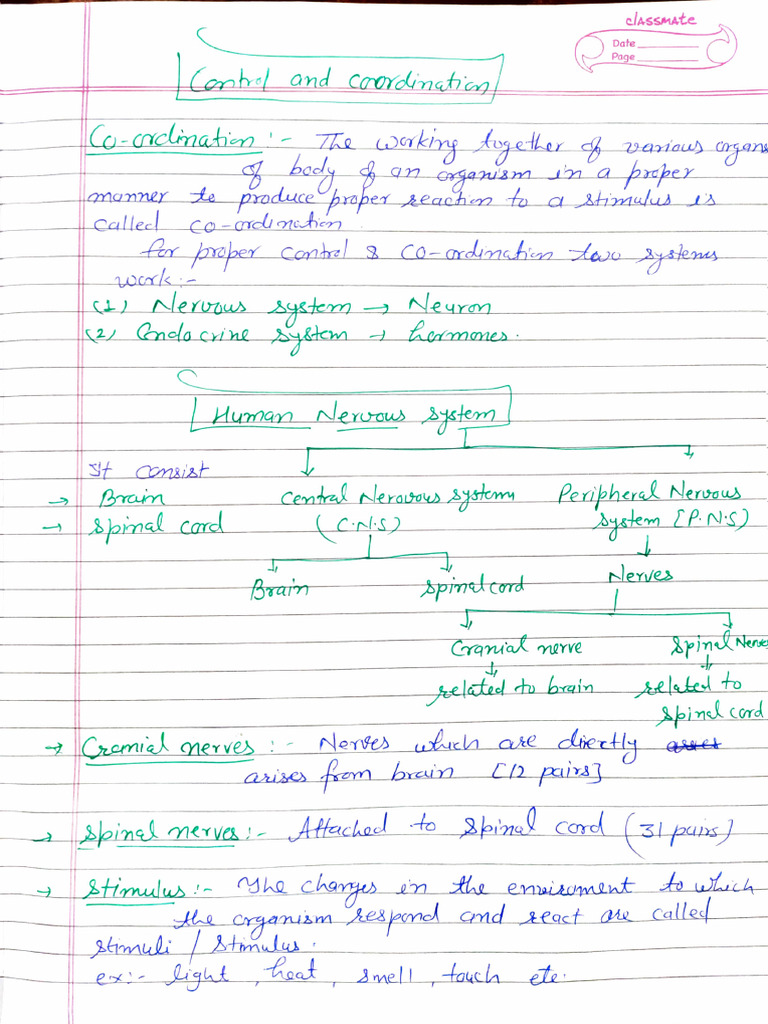 classmate
Date
Page
Control and coordination
Co-ordination :- The working together of various organs
of body of an organism in a proper
manner to produce proper reaction to a stimulus is
called co-ordination.
for proper control & co-ordination two systems
work:-
(1) Nervous system → Neuron
(2) Endocrine system → hormones.
Human Nervous system
It consist
→ Brain
→ Spinal cord
Central Nervous system
(C.N.S)
Peripheral Nervous
system [P.N.S)
Brain
Spinal cord
Nerves
Cranial nerve
Spinal Nerves
related to brain
related to
spinal cord
→ Cranial nerves :- Nerves which are directly
arises from brain [12 pairs]
→ Spinal nerves:- Attached to Spinal cord (31 pairs]
→ Stimulus:- The changes in the enviroment to which
the organism respond and react are called
stimuli / stimulus.
ex:- light, heat, smell, touch etc.